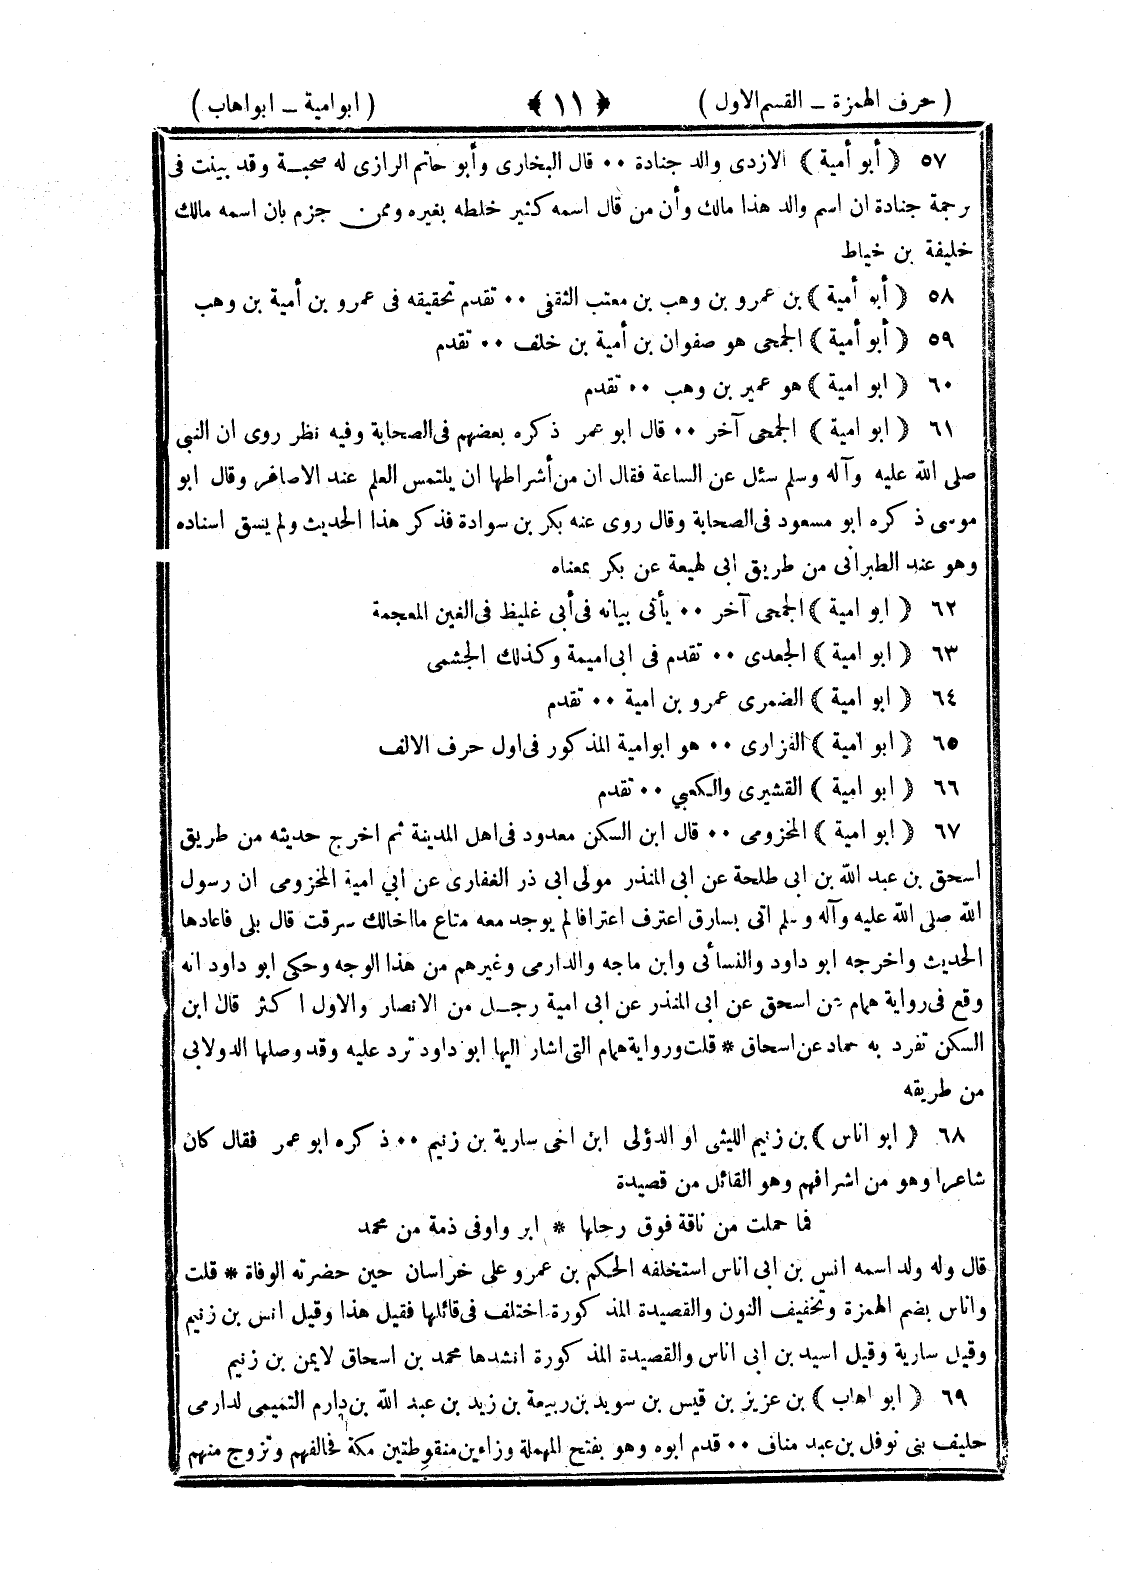 ( حرف الهمزة ــ القسم الاول ) ﴿ ١١ ﴾ ( ابو امية ــ ابو اهاب )
٥٧ ﴿ أبو أمية ﴾ الازدى والد جنادة ٠٠ قال البخارى وأبو حاتم الرازى له صحبـة وقد بينت فى
ترجمة جنادة ان اسم والد هذا مالك وأن من قال اسمه كثير خلطه بغيره وممن جزم بان اسمه مالك
خليفة بن خياط
٥٨ ﴿ أبو أمية ﴾ بن عمرو بن وهب بن معتب الثقفى ٠٠ تقدم تحقيقه فى عمرو بن أمية بن وهب
٥٩ ﴿ أبو أمية ﴾ الجمحى هو صفوان بن أمية بن خلف ٠٠ تقدم
٦٠ ﴿ ابو امية ﴾ هو عمير بن وهب ٠٠ تقدم
٦١ ﴿ ابو امية ﴾ الجمحى آخر ٠٠ قال ابو عمر ذكره بعضهم فى الصحابة وفيه نظر روى ان النبي
صلى الله عليه وآله وسلم سئل عن الساعة فقال ان من أشراطها ان يلتمس العلم عند الاصاغر وقال ابو
موسى ذكره ابو مسعود فى الصحابة وقال روى عنه بكر بن سوادة فذكر هذا الحديث ولم يسق اسناده
وهو عند الطبرانى من طريق ابى لهيعة عن بكر بمعناه
٦٢ ﴿ ابو امية ﴾ الجمحى آخر ٠٠ يأتى بيانه فى أبي غليظ فى الغين المعجمة
٦٣ ﴿ ابو امية ﴾ الجعدى ٠٠ تقدم فى ابى اميمة وكذلك الجشمى
٦٤ ﴿ ابو امية ﴾ الضمرى عمرو بن امية ٠٠ تقدم
٦٥ ﴿ ابو امية ﴾ الفزارى ٠٠ هو ابو امية المذكور فى اول حرف الالف
٦٦ ﴿ ابو امية ﴾ القشيرى والكعبي ٠٠ تقدم
٦٧ ﴿ ابو امية ﴾ المخزومى ٠٠ قال ابن السكن معدود فى اهل المدينة ثم اخرج حديثه من طريق
اسحق بن عبد الله بن ابى طلحة عن ابى المنذر مولى ابى ذر الغفارى عن ابي امية المخزومى ان رسول
الله صلى الله عليه وآله وسلم اتى بسارق اعترف اعترافا لم يوجد معه متاع ما اخالك سرقت قال بلى فاعادها
الحديث واخرجه ابو داود والنسائى وابن ماجه والدارمى وغيرهم من هذا الوجه وحكى ابو داود انه
وقع فى رواية همام عن اسحق عن ابى المنذر عن ابى امية رجـل من الانصار والاول اكثر قال ابن
السكن تفرد به حماد عن اسحاق * قلت ورواية همام التى اشار اليها ابو داود ترد عليه وقد وصلها الدولابى
من طريقه
٦٨ ﴿ ابو اناس ﴾ بن زنيم الليثى او الدؤلى ابن اخى سارية بن زنيم ٠٠ ذكره ابو عمر فقال كان
شاعرا وهو من اشرافهم وهو القائل من قصيدة
فما حملت من ناقة فوق رحلها * ابر واوفى ذمة من محمد
قال وله ولد اسمه انس بن ابى اناس استخلفه الحكم بن عمرو على خراسان حين حضرته الوفاة * قلت
واناس بضم الهمزة وتخفيف النون والقصيدة المذكورة اختلف فى قائلها فقيل هذا وقيل انس بن زنيم
وقيل سارية وقيل اسيد بن ابى اناس والقصيدة المذكورة انشدها محمد بن اسحاق لايمن بن زنيم
٦٩ ﴿ ابو اهاب ﴾ بن عزيز بن قيس بن سويد بن ربيعة بن زيد بن عبد الله بن دارم التميمى لدارمى
حليف بنى نوفل بن عبد مناف ٠٠ قدم ابوه وهو بفتح المهملة وزاءين منقوطتين مكة فحالفهم وتزوج منهم